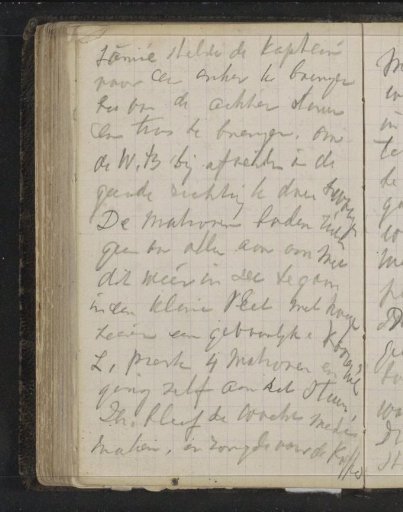 stelde de Kaptein
voor een anker te brengen
en om de achter steven
een tros te brengen, om
de W. B bij afvallen in de
goede richting te doen
De matrozen boden zich
geen van allen aan om mee
dit weer in zee te gaan
in een kleine vlet met hooge
zeeën een gevaarlijke
L, 4 Matrozen en
ging zelf aan het stuur,
Ik bleef de wacht mede
maken, en zorgde voor de Koffie